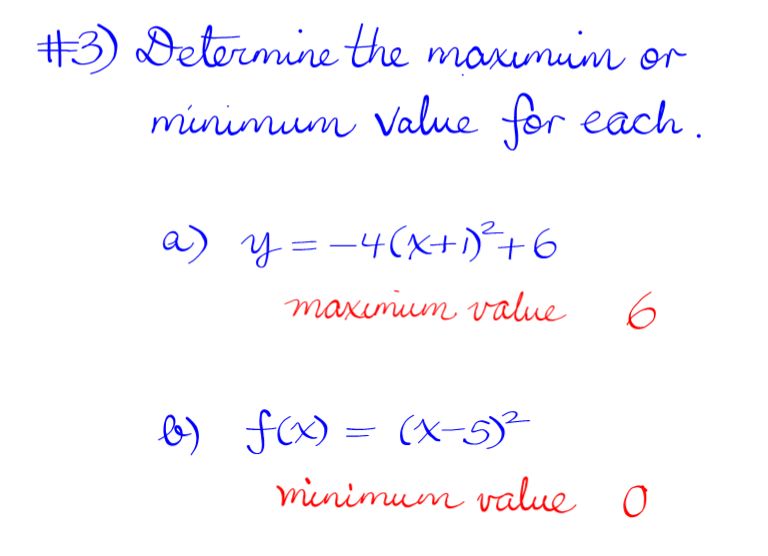 #3) Determine the maximum or
minimum value for each.
a) y = -4(x+1)²+6
maximum value 6
b) f(x) = (x-5)²
minimum value 0